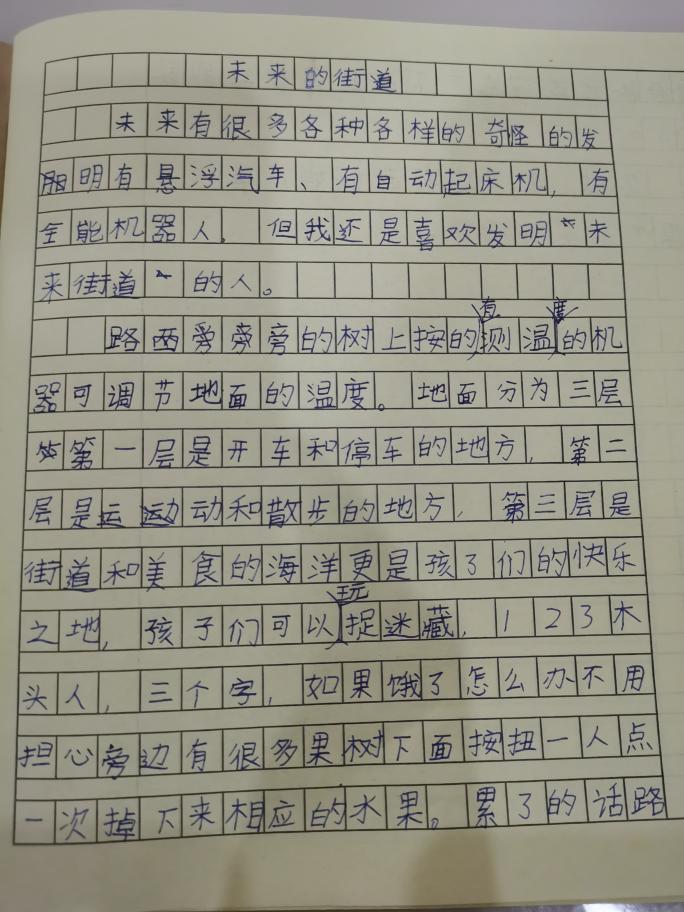 未来的街道
未来有很多各种各样的奇怪的发
明有悬浮汽车、有自动起床机，有
全能机器人。但我还是喜欢发明“未
来街道”的人。
路西旁旁旁的树上按的有测温度的机
器可调节地面的温度。地面分为三层
第一层是开车和停车的地方，第二
层是运动动和散步的地方，第三层是
街道和美食的海洋更是孩了们的快乐
之地，孩子们可以玩捉迷藏，123木
头人，三个字，如果饿了怎么办不用
担心旁边有很多果树下面按扭一人点
一次掉下来相应的水果。累了的话路